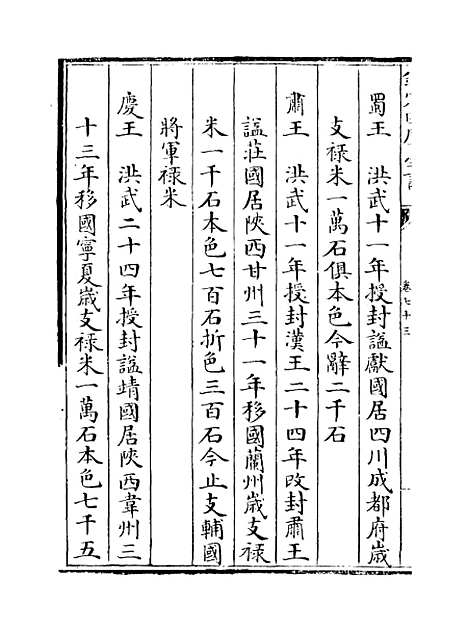 卷七十三
蜀王　洪武十一年授封諡獻國居四川成都府歲
支禄米一萬石俱本色今辭二千石
肅王　洪武十一年授封漢王二十四年改封肅王
諡莊國居陜西甘州三十一年移國蘭州歲支禄
米一千石本色七百石折色三百石今止支輔國
將軍禄米
慶王　洪武二十四年授封諡靖國居陜西韋州三
十三年移國寧夏歲支禄米一萬石本色七千五